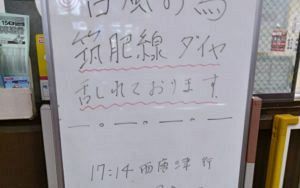 台風の為
筑肥線ダイヤ
乱れております
17:14 西唐津行